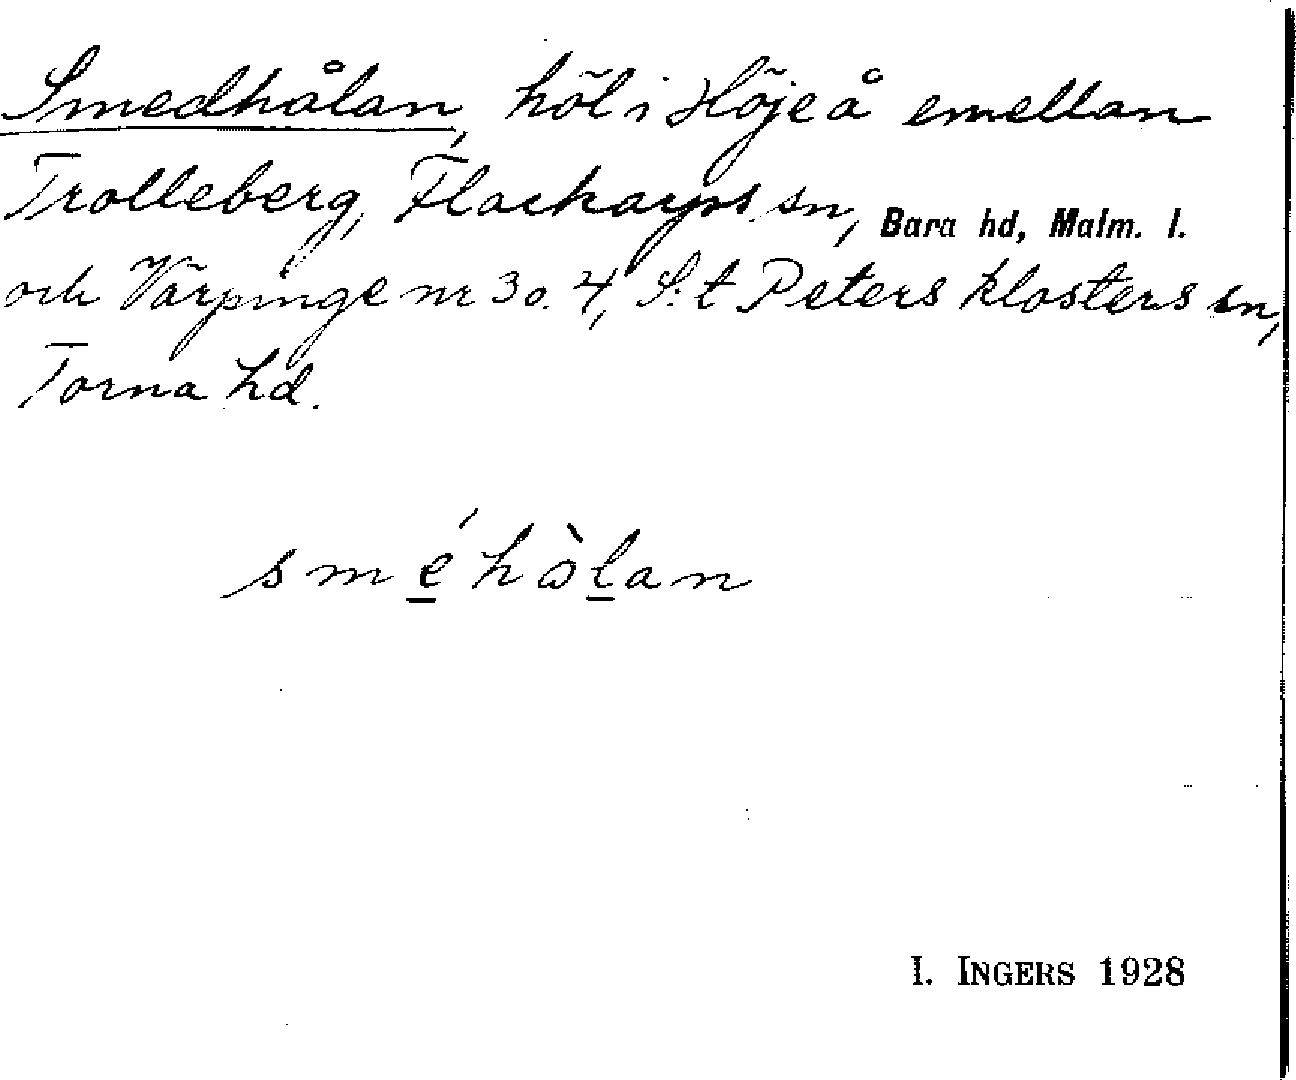 Smedhålan, höl i Höje å emellan
Trolleberg, Flackarps sn, Bara hd, Malm. l.
och Värpinge nr 3 o. 4, S:t Peters klosters sn,
Torna hd.
sméhòlan
I. INGERS 1928